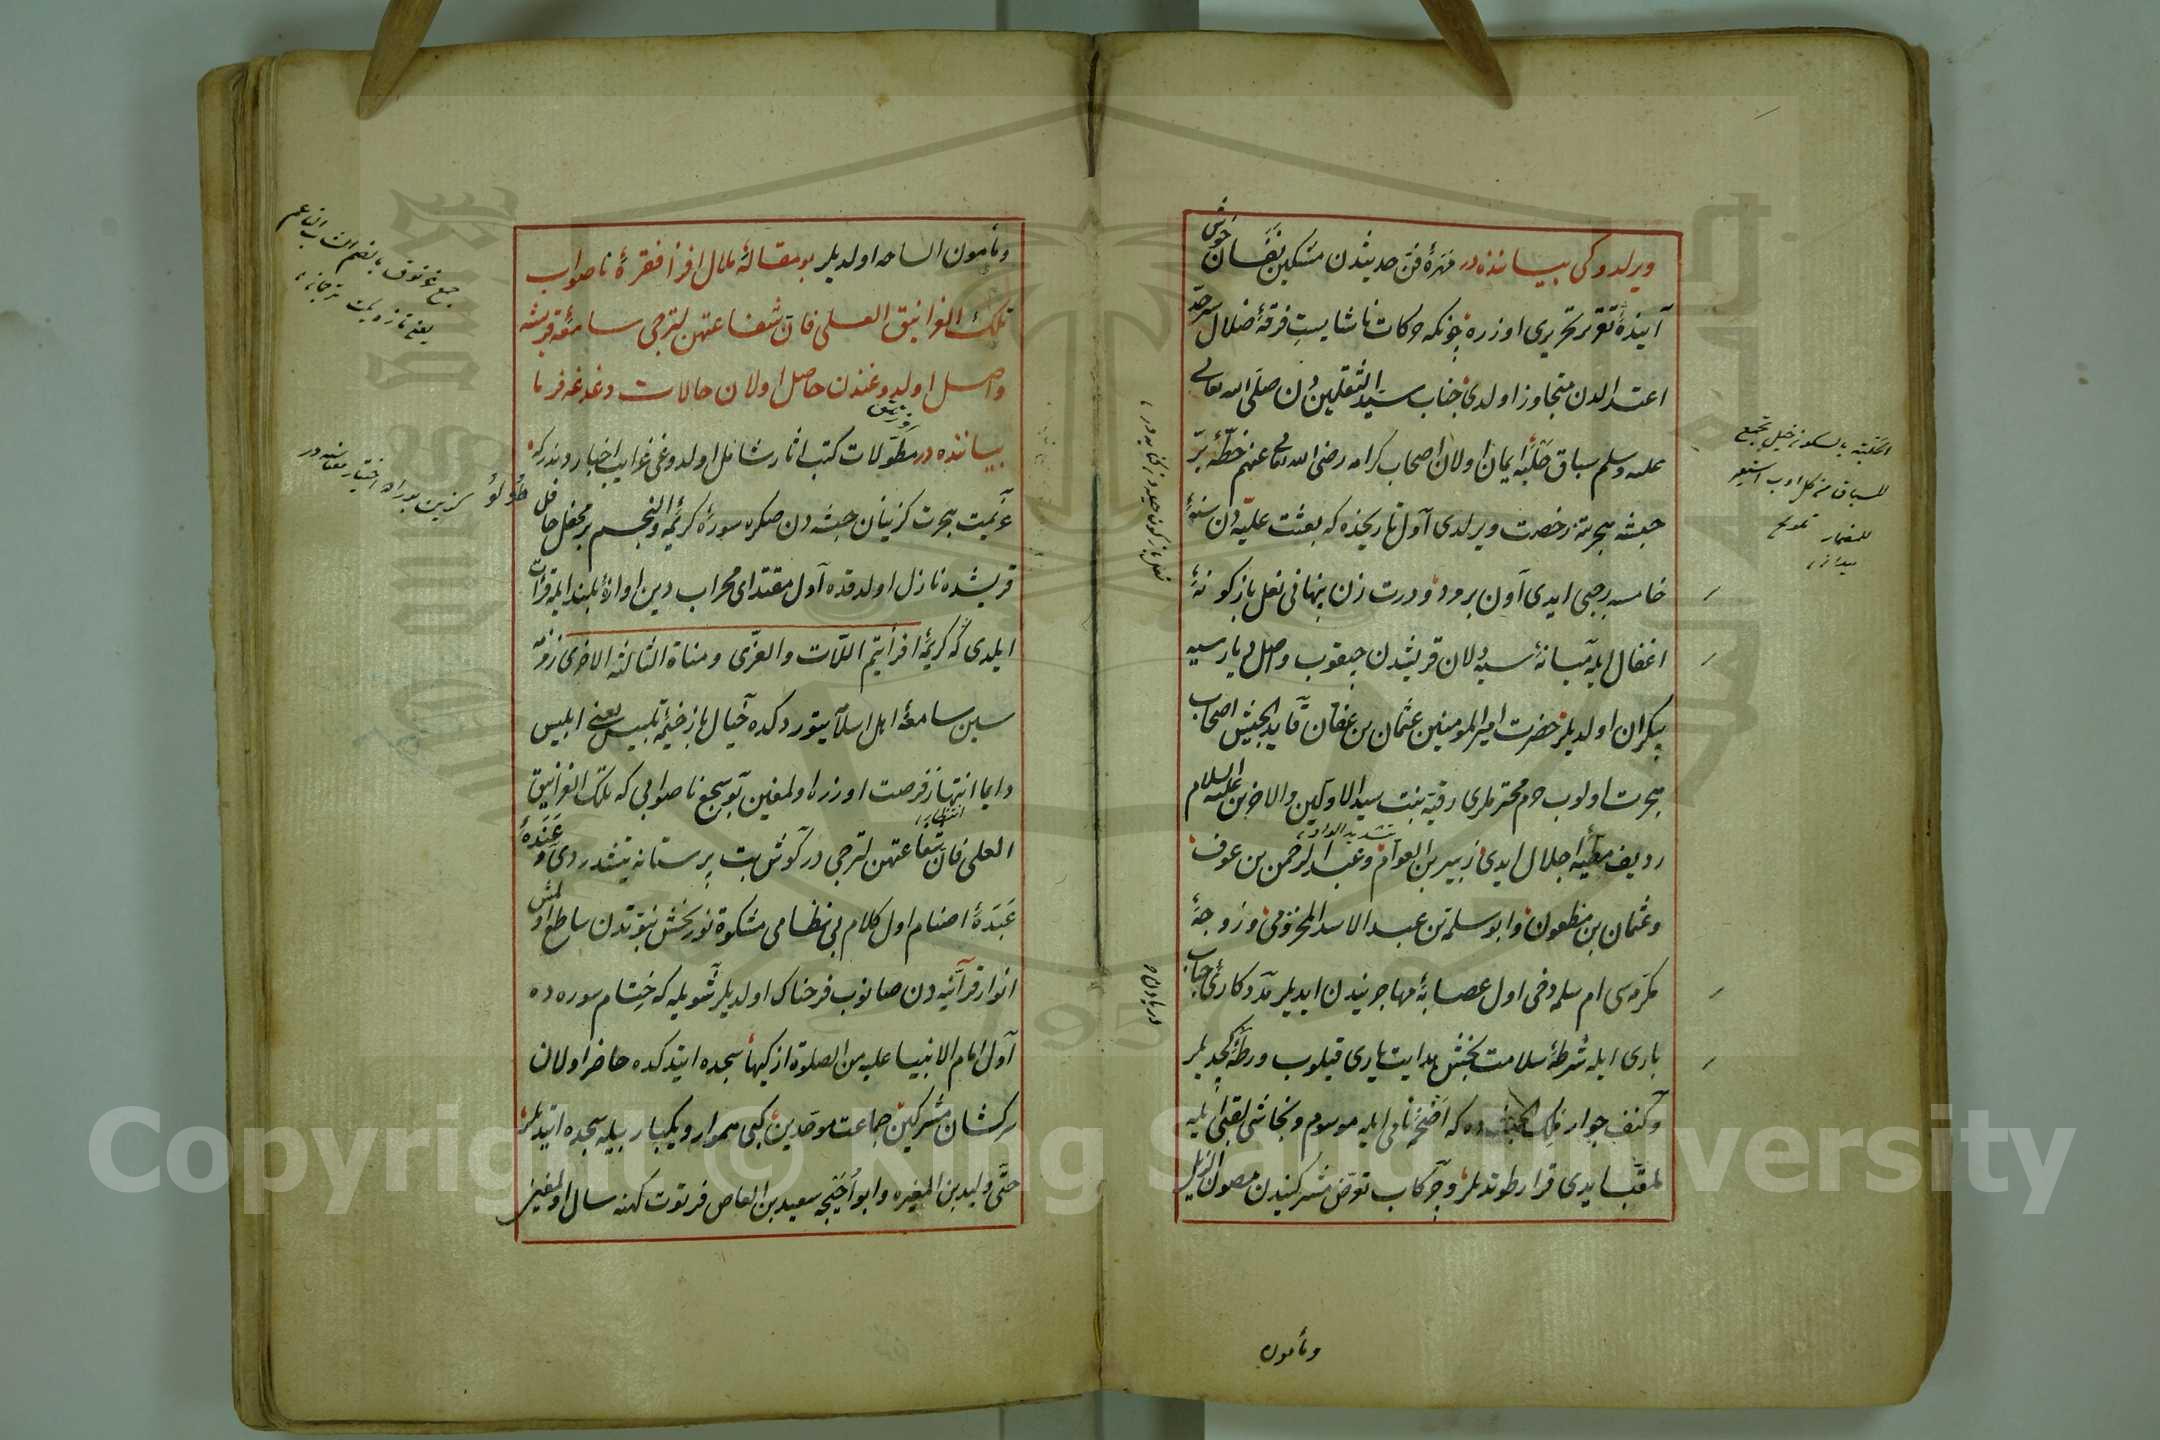 ویرلدوکی بیاننده در مهرهٔ فن حدیثدن مشکین نفسان خوش
آیندهٔ تقریر تحریری اوزره چونکه حرکات ناشایست فرقهٔ ضلال سرحد
اعتدالدن متجاوز اولدی جناب سید الثقلیندن صلی الله تعالی
علیه وسلم سباق حلبهٔ ایمان اولان اصحاب کرامه رضی الله تعالی عنهم خطهٔ بر
حبشه هجرته رخصت ویرلدی اول تاریخده که بعثت علیه دن سنهٔ
خامسه رجبی ایدی اون بر مرد و درت زن پنهانی نعل بازکونهٔ
اغفال ایله میانهٔ سیه دلان قریشدن چیقوب واصل دیار سیه
پیکران اولدیلر حضرت امیر المومنین عثمان بن عفان قاید الجیش اصحاب
هجرت اولوب حرم محترملری رقیه بنت سید الاولین والاخرین علیه السلام
ردیف مطیهٔ اجلال ایدی زبیر بن العوام وعبد الرحمن بن عوف
بتشدید الواو
وعثمان بن مظعون وابو سلمة بن عبد الاسد المخزومی وزوجهٔ
مکرمه سی ام سلمه دخی اول عصابهٔ مهاجریندن ایدیلر مددکارئ جناب
باری ایله شرطهٔ سلامت بخش هدایت یاری قیلوب ورطهٔ کچدیلر
وکنف جوار ملک الحبشه ده که اصحمه نامی ایله موسوم ونجاشی لقبی ایله
ملقب ایدی قرار طوتدیلر وحرکات تعرض مشرکیندن مصون
الحلبة بالسکون خیل تجمع
للسباق من کل اوب استعیر
للمضمار
میدان
دریادن
ومأمون
ومأمون الساحه اولدیلر بو مقالهٔ ملال افزا فقرهٔ ناصواب
تلك الغرانیق العلی فان شفاعتهن لترجی سامعهٔ قریشه
واصل اولدوغندن حاصل اولان حالات دغدغه فرما
بیاننده در مطولات کتب اثار شامل اولدوغی غرایب اخباردندر که
عزیمت هجرت کزینان حبشه دن صکره سورهٔ کریمهٔ والنجم بر محفل حافل
قریشده نازل اولدقده اول مقتدای محراب دین اوازهٔ بلند ایله قرأت
ایلدی که کریمهٔ افرأیتم اللات والعزی ومناة الثالثة الاخری زمزمه
سین سامعهٔ اهل اسلامه یتوردکده خیال باز خیمهٔ تلبیس یعنی ابلیس
دایما انتهاز فرصت اوزره اولمغین بو سجع ناصوابی که تلك الغرانیق
انتظار
العلی فان شفاعتهن لترجی در کوش بت پرستانه یتشدردی
عبدهٔ اصنام اول کلام بی نظامی مشکوة نوربخش نبوتدن ساطع اولمش
انوار قرآنیه دن صانوب فرحناک اولدیلر شویله که ختام سوره ده
اول امام الانبیا علیه من الصلوة ازکیها سجده ایتدکده حاضر اولان
سرکشان مشرکین جماعت موحدین کبی هموار ویکبار بیله سجده ایتدیلر
حتی ولید بن المغیره وابو احیحه سعید بن العاص فرتوت کهنه سال اولمغین
جمع غرنوق بالضم الشاب الناعم